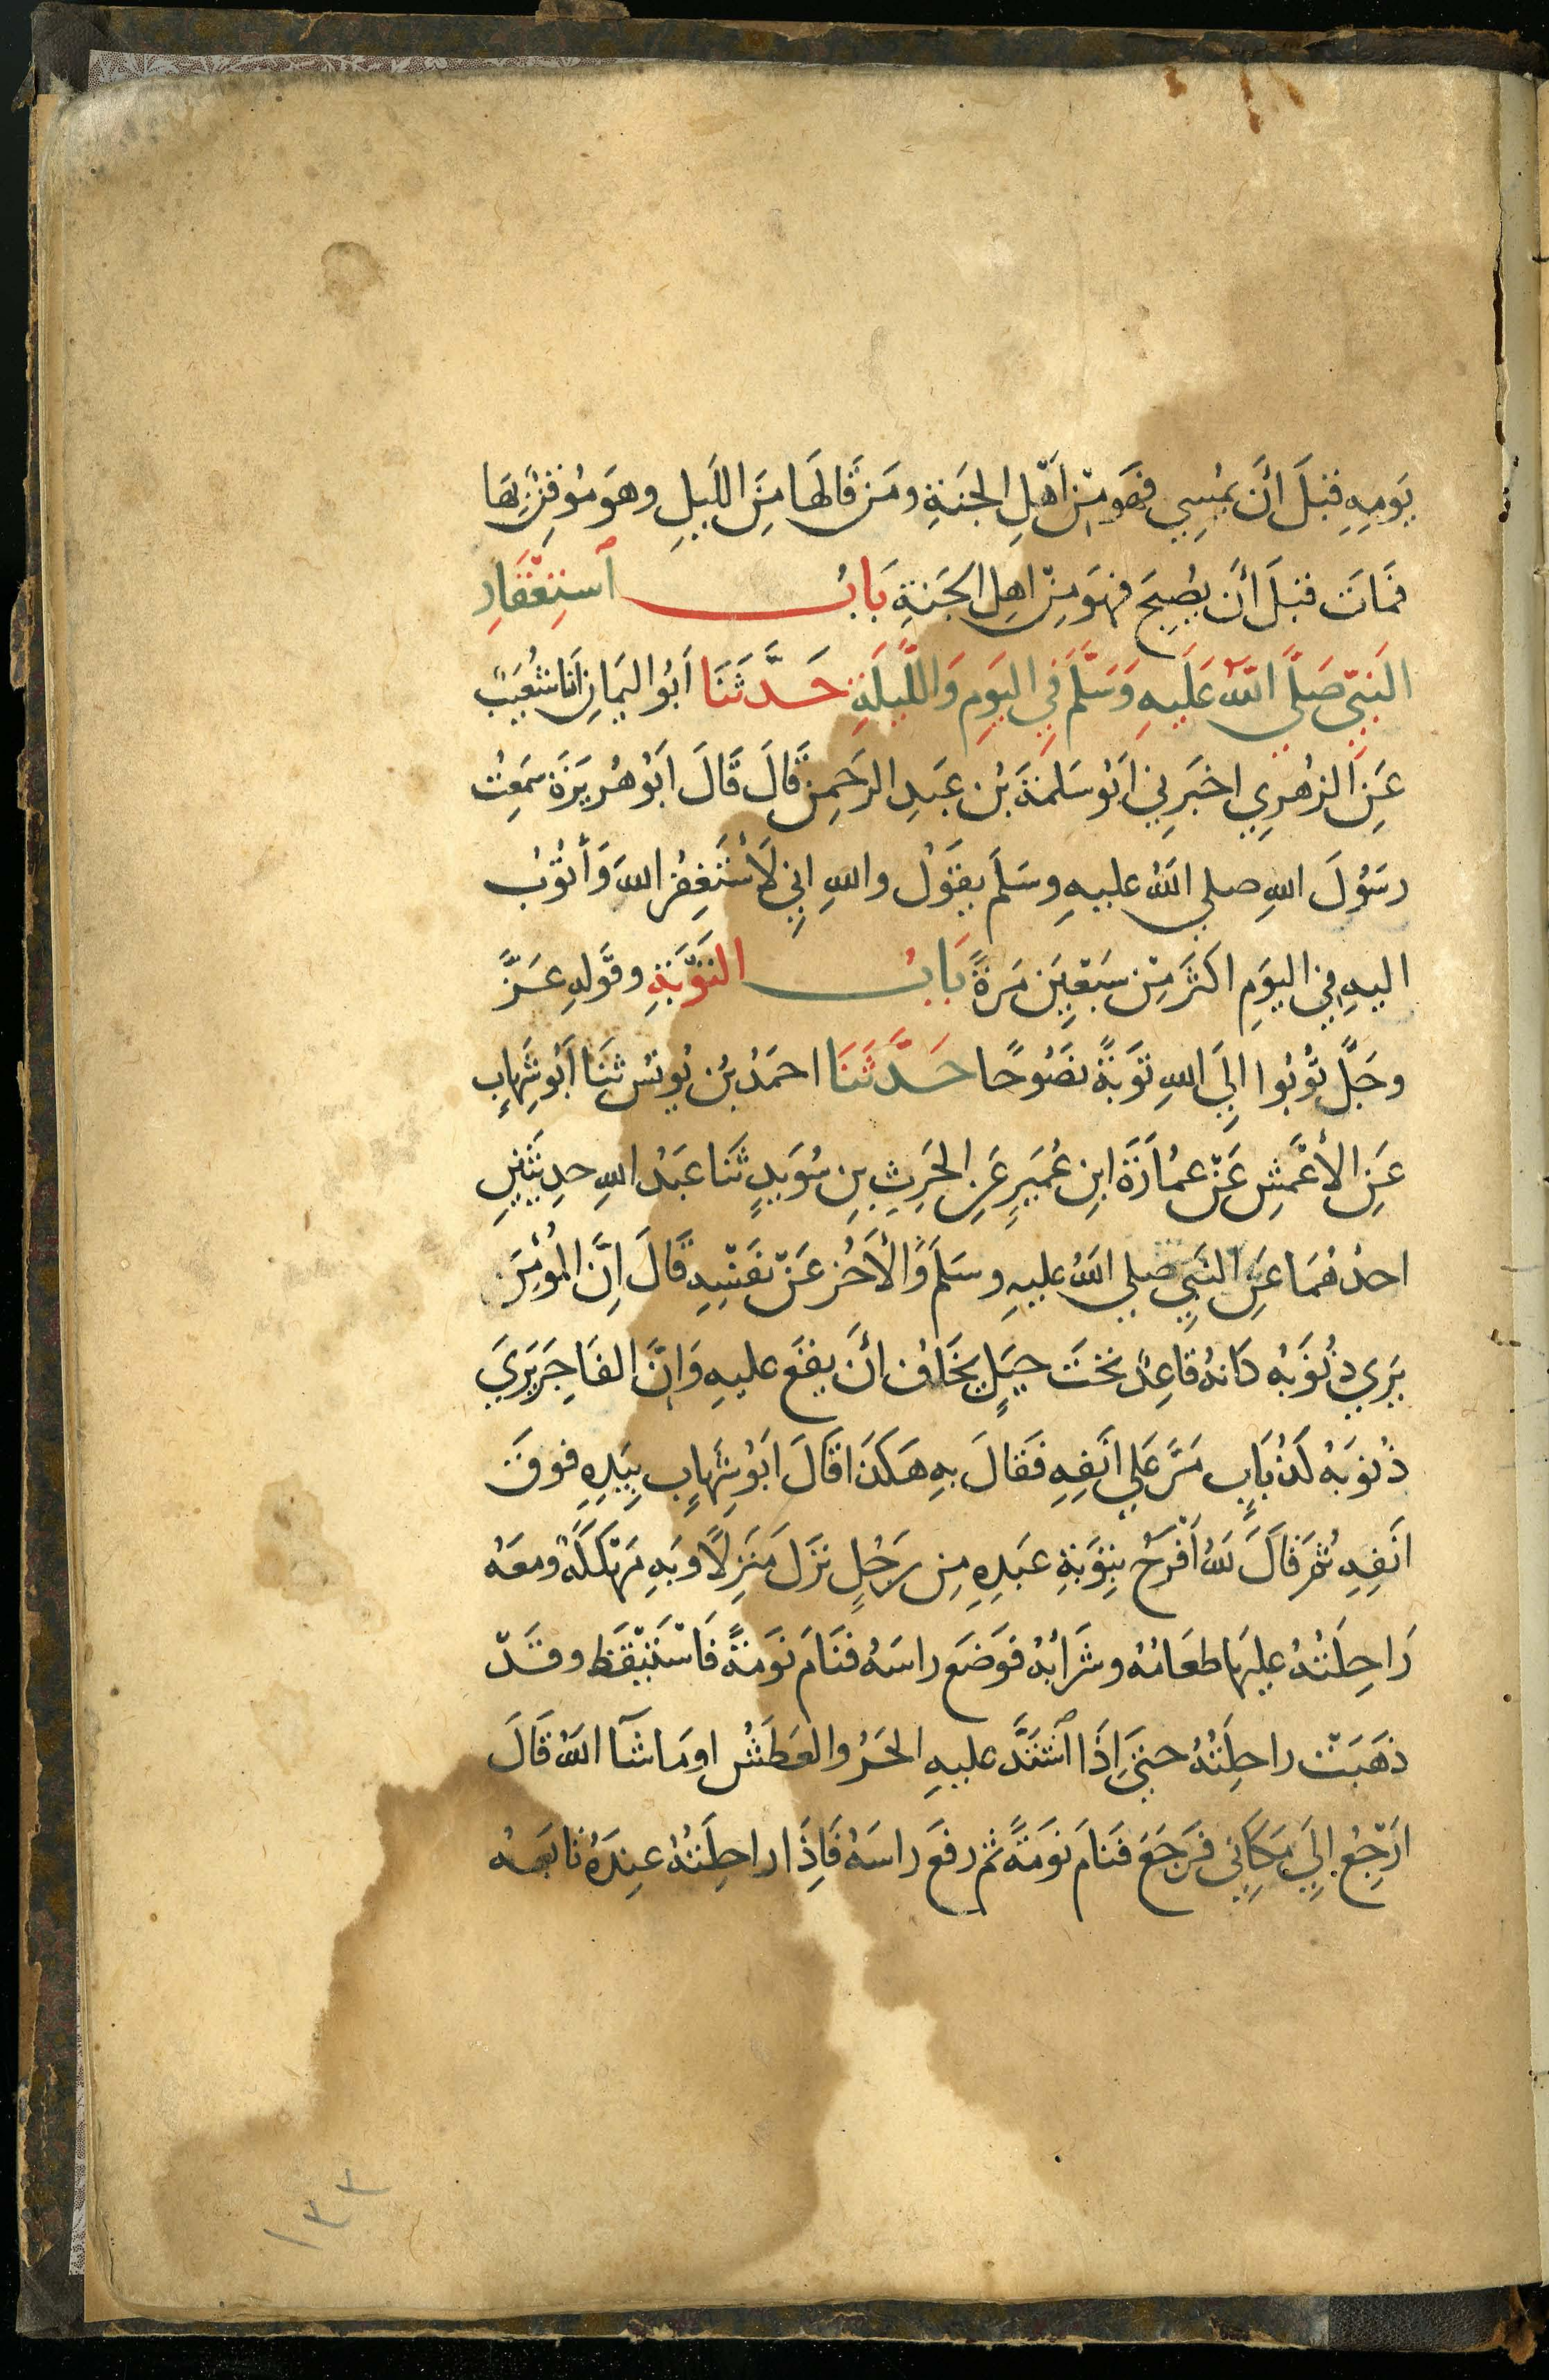 يَومِهِ قبْلَ اَنَ يمُسِي فهَو مِنْ اَهْلِ الجَنةِ ومَن قَالهَا مِنَ اللَيلِ وهوَ مُوقِنٌ بِهَا
فمَاتَ قبْلَ اَنَ يصُبِحَ فهوَ مِنْ اهلِ الجَنةِ بَابُ اَستِغْفَارِ
النَبيّ صَلّي اللّهُ عَلَيهِ وَسَلَّمَ فِي اليَومِ وَاللَّيلَةِ حَدَّثَنَا اَبُو اليَمَانِ اَنَا شُعَيبٌ
عَنِ الزهُرِي اخبَرِني اَبوُ سَلَمةَ بُن عَبدِ الرحَمنِ قَالَ قَالَ اَبوُ هُريرَةَ سَمِعتُ
رسَوُلَ اللهِ صلي اللهُ عليهِ وسَلَمَ يقَوُل واللهِ اِنِي لَاَسْتَغِفرُ اللهَ وَأَتوُبُ
اليهِ في اليوَمِ اكثرَ مِنْ سَبْعِينَ مَرةً بَابُ التَوْبَةِ وقَولهِ عَزَّ
وجَلَّ توُبُوا اِلَي اللهِ توَبةً نصَوُحًا حَدَّثَنَا احمَدُ بُن يوُنسُ ثنَا اَبوُ شِهابٍ
عَنِ الأَعْمَشِ عَنْ عمُاَرَةَ ابنِ عُمَيرٍ عَنِ الحَرِثِ بنِ سُوَيدٍ ثنَا عبَدُ اللهِ حدِيثَينِ
احدُهُمَا عَنِ النَبِي صلي اللهُ عليهِ وسَلَمَ وَالأَخُر عَنْ نفَسِهِ قَالَ اِنَّ المُؤْمِنَ
يرَي ذنُوَبهُ كاَنهُ قاَعِدٌ تحَتَ جبَلٍ يخَافُ اَنَ يقَع عليهِ وَاِنَّ الفَاجِرَ يَرَي
ذُنوَبهُ كَذبُاَبٍ مَرَّ عَلي اَنفِهِ فَقالَ بهِ هَكَذَا قَالَ اَبوُ شِهَابٍ بيَدِهِ فوقَ
اَنَفِهِ ثمُ قَالَ للهُ اَفْرَحُ بتِوَبةِ عبَدِهِ مِن رجَلٍ نزَل مَنزِلًا وبَهِ مَهْلَكَةٌ ومعَهُ
رَاحِلَتُهُ عليهَا طعَامُهُ وشَرَابهُ فوَضَع راسَهُ فنَامَ نوَمةً فَاسْتَيْقَظ وقَدْ
ذهَبَتْ راحلِتُهُ حتيَ اِذَا اشتَدَّ عليهِ الحَرُ والعطَشُ او مَا شَآ اللهُ قَالَ
ارَجِعُ اِلَي مَكَانِي فرَجَعَ فنَامَ نوَمةً ثم رفعَ راسَهُ فَاِذَا راحلِتُهُ عنِدَهُ تابَعهُ
١٣٣